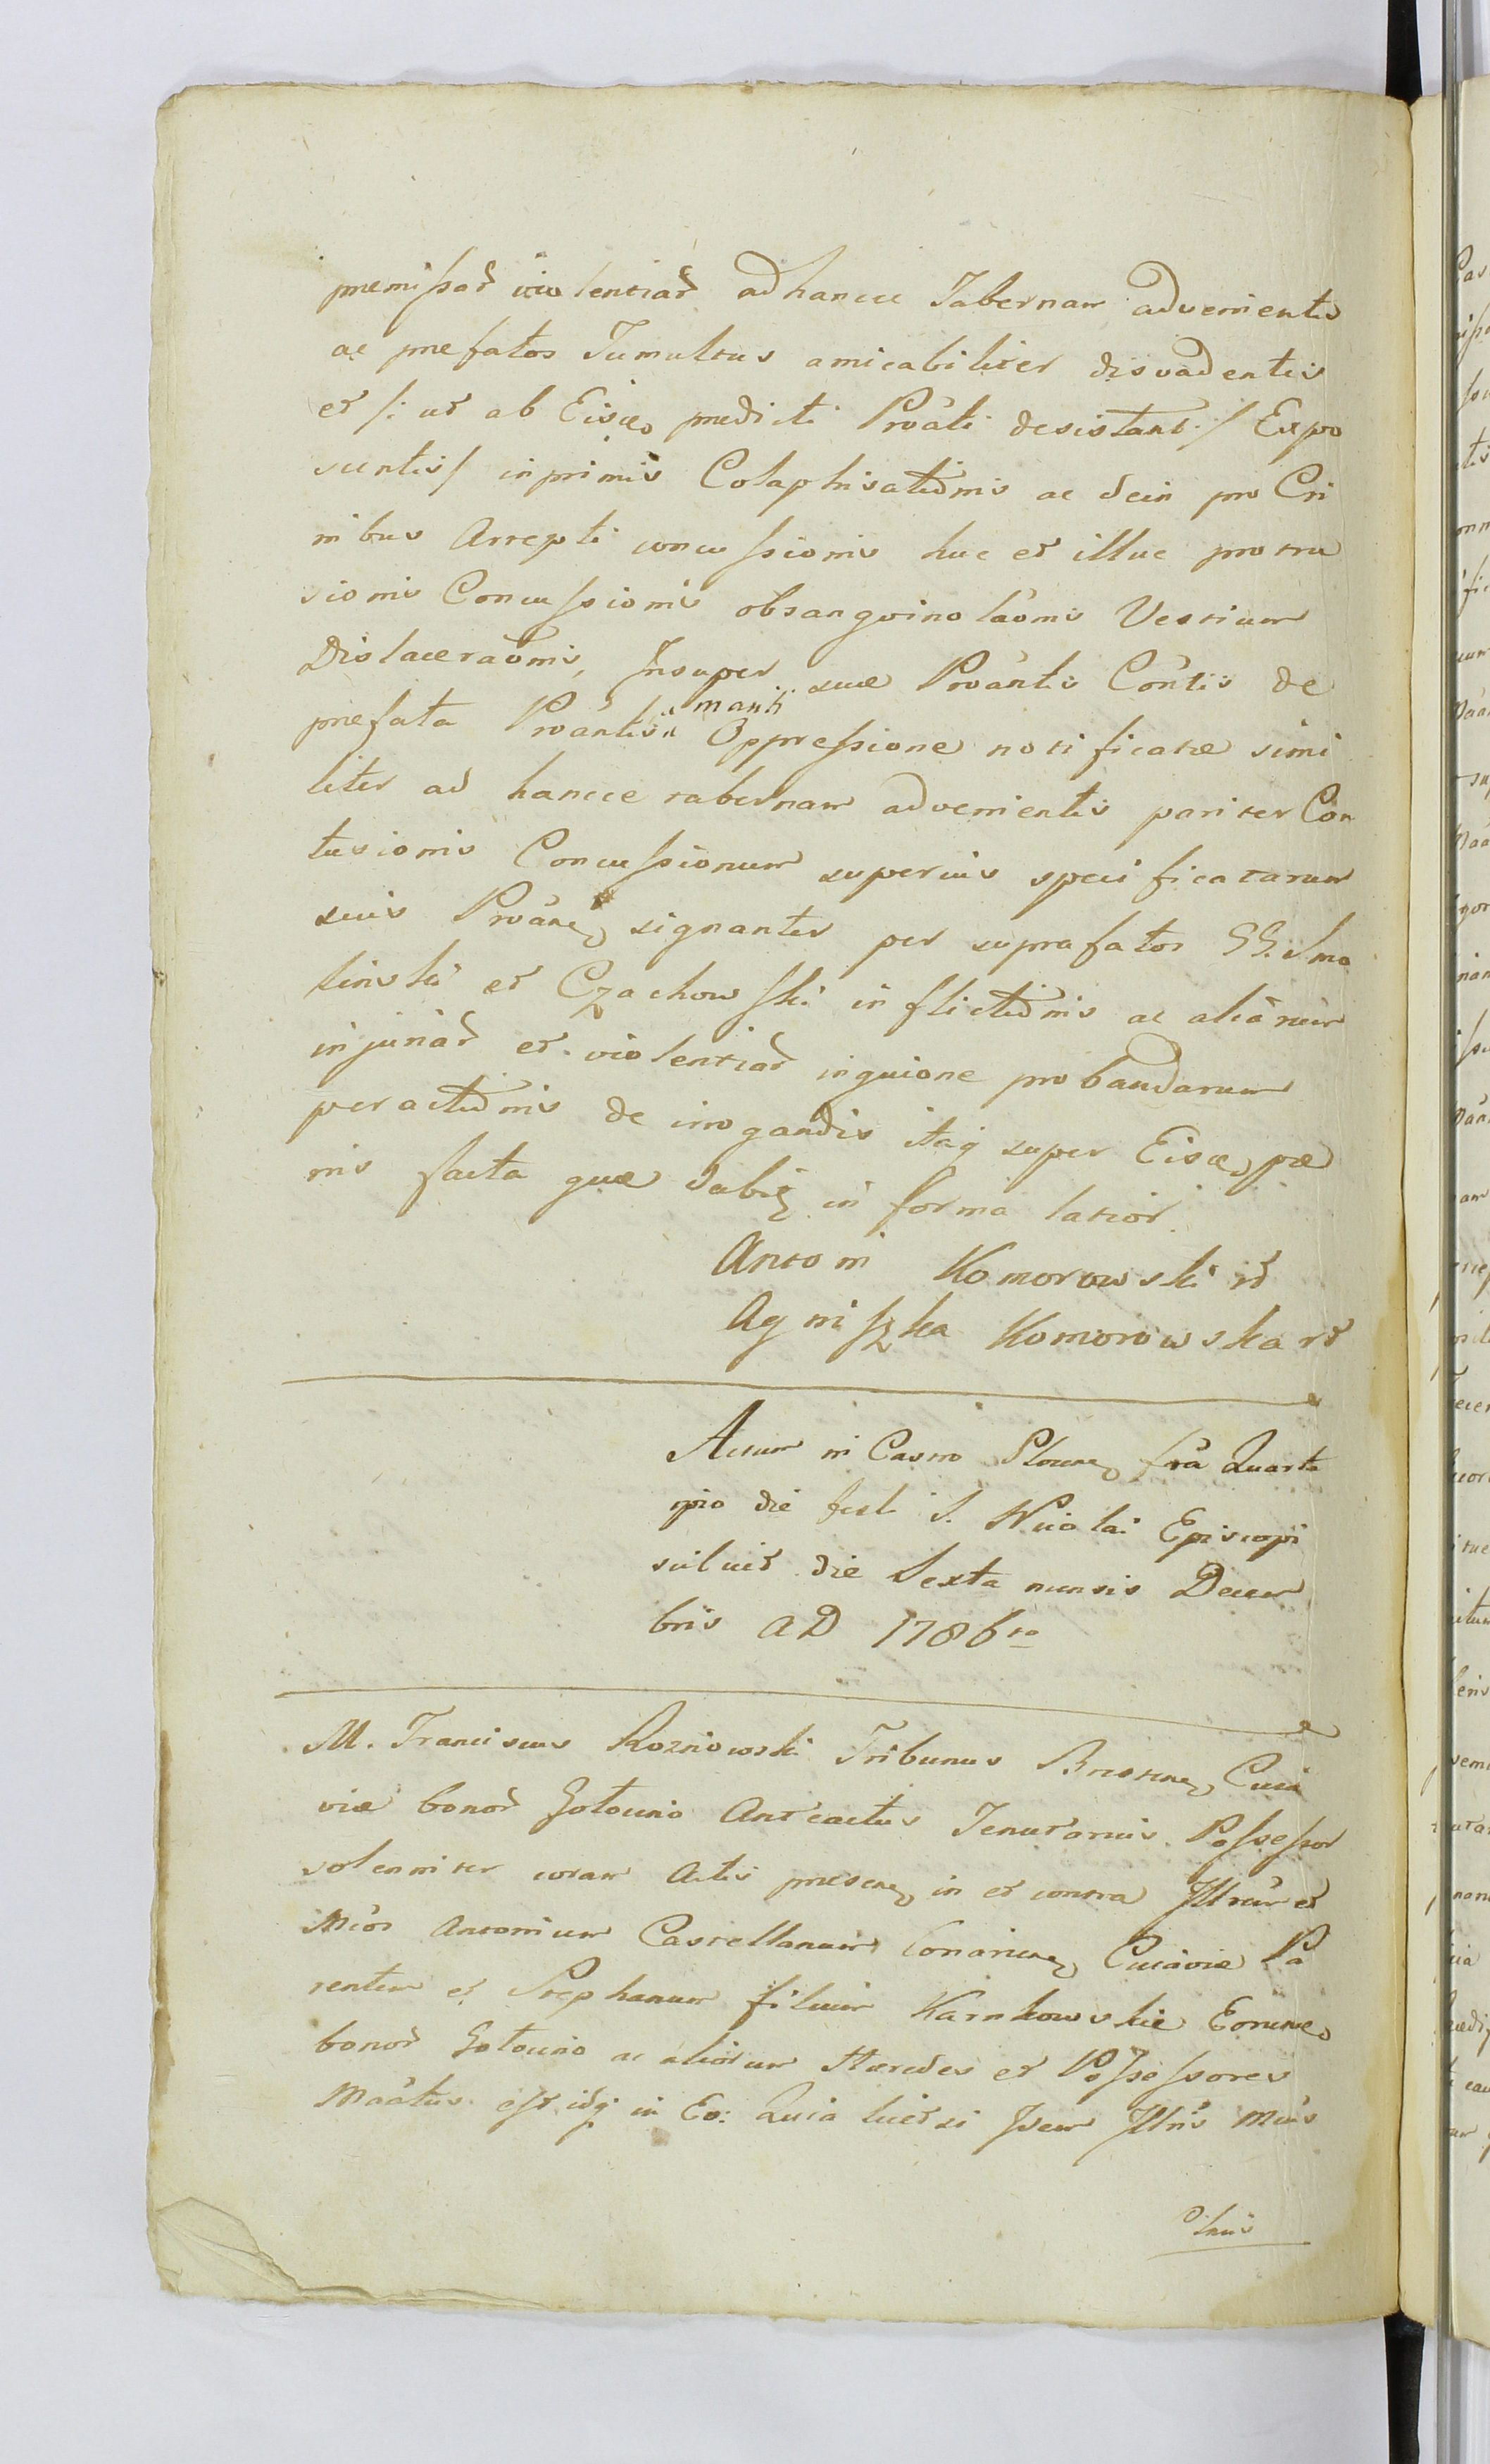 premissar violentiar ad hancce Tabernam advenientis
ac prefatos Tumultus amicabiliter disvadentis
et /: ut ab Eisce predicti Proâti desistant :/ Expo
scentis/ inprimis Colaphisationis ac dein pro Cri
nibus Arrepti concussionis huc et illuc protru
sionis Concussionis obsangvinolaônis Vestium
Dislaceraônis, Insuper suæ Proântis Côntis de
prefata Proântis mariti Oppressione notificatæ simi
liter ad hancce tabernam advenientis pariter Con
tusionis Concussionum superius specificatarum
suis Proâne signanter per suprafatos GG. Smo
linski et Czachowski inflictionis ac aliârum
injuriar et violentiar inquione probandarum
peractionis de irrogandis itaq super Eisce pæ
nis facta quæ dabit in forma latior.
Antoni Komorowski
Agniszka Komorowska
Actum in Castro Plocen fria Quarta
ipso die festi S. Nicolai Episcopi
scilicet die Sexta mensis Decem
bris AD 1786to
M. Franciscus Rozniowski Tribunus Bresten Cuia
viæ bonor Gotocino Anteactus Tenutarius Possessor
solenniter coram Actis presen in et contra Illrem et
Mcos Antonium Castellanum Conarien Cuiaviæ Pa
rentem et Stephanum filium Karnkowskie Eorumve
bonor Gotocino ac aliorum Hæredes et Possessores
Maâtus est idq in Eo: Quia licet si Idem Illris Mcus